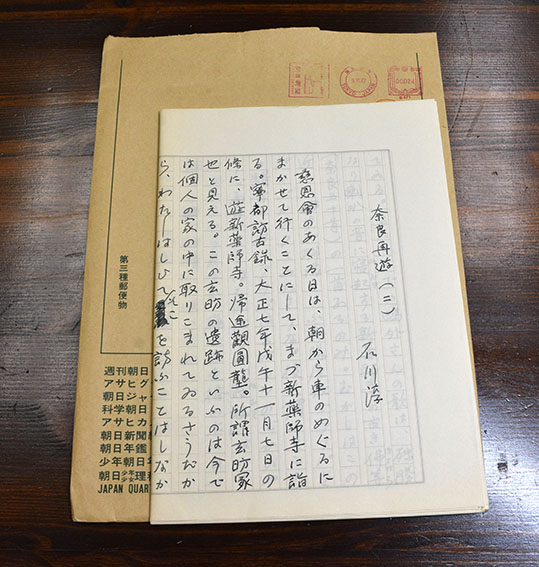 奈良再遊（二）
石川淳
慈恩會のあくる日は、朝から車のめぐるに
まかせて行くことにして、まづ新薬師寺に詣
る。寧都訪古録、大正七年戊午十一月七日の
條に、遊新薬師寺。帰途觀圓塟。所謂玄昉冢
也と見える。この玄昉の遺跡といふのは今で
は個人の家の中に取りこまれてゐるさうだか
ら、わたしはしひてそこを訪ふことはしなか
第三種郵便物
週刊朝日
アサヒグ
朝日ジャ
科学朝日
アサヒカ
朝日新聞
朝日年鑑
少年朝日年
朝日少年少女理科
JAPAN QUART